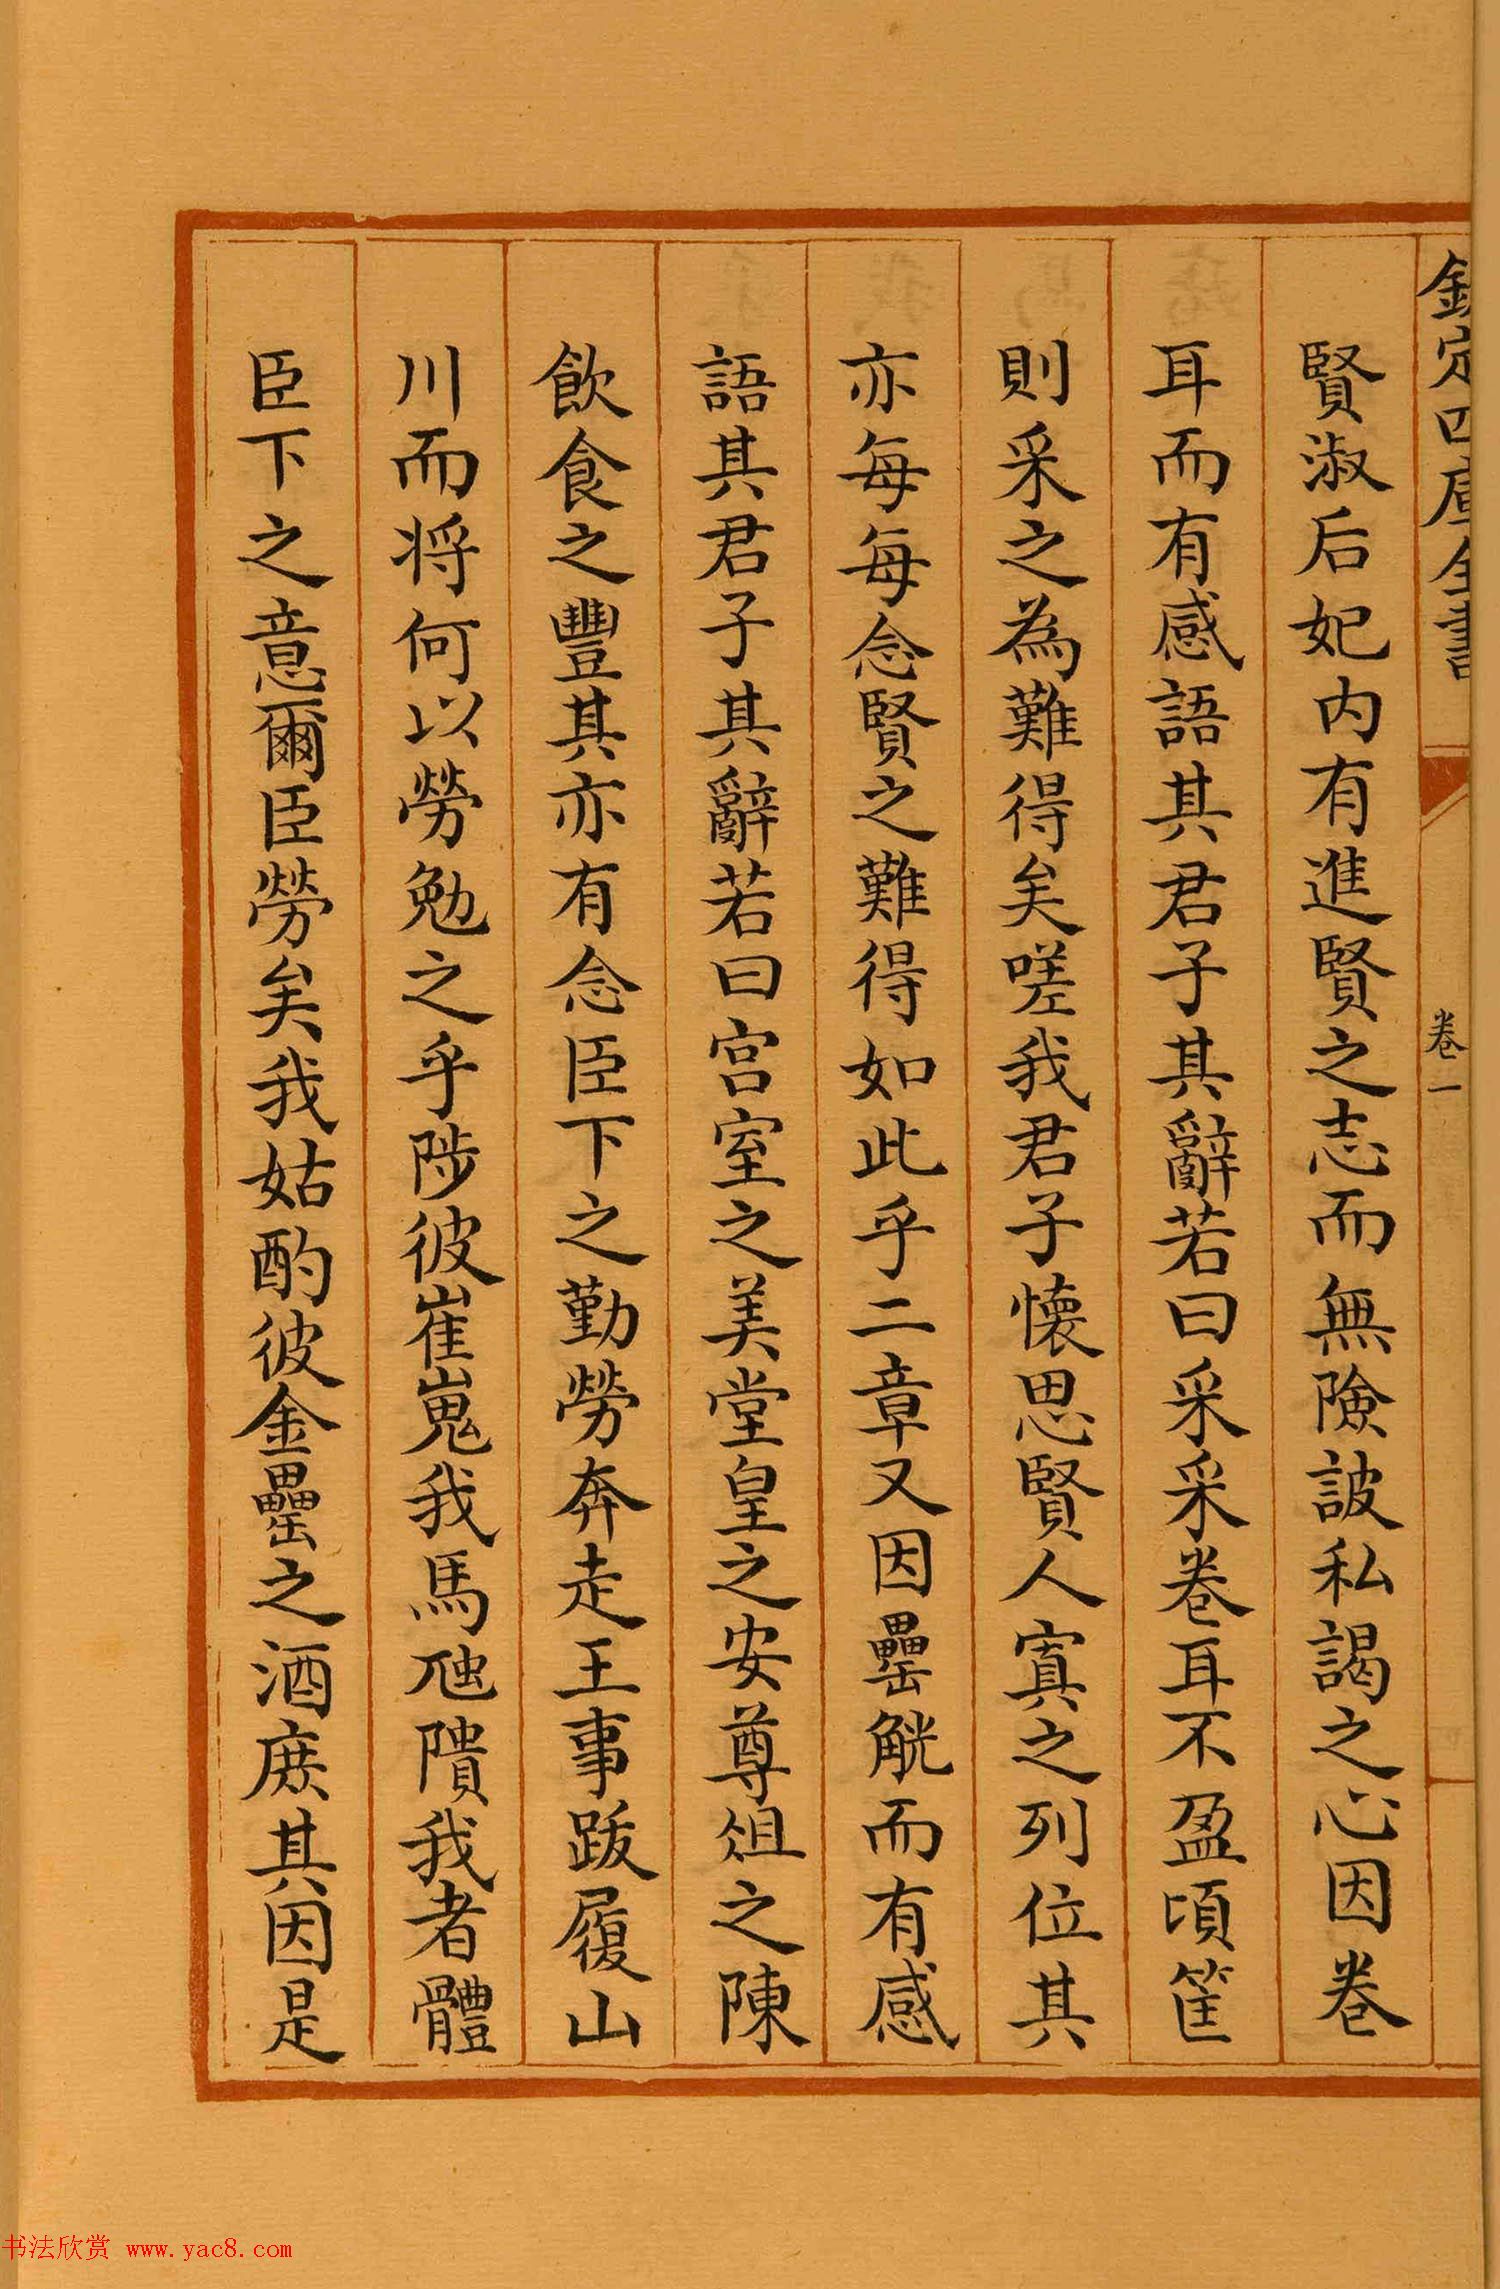 欽定四庫全書
卷一
賢淑后妃内有進賢之志而無險詖私謁之心因卷
耳而有感語其君子其辭若曰采采卷耳不盈頃筐
則采之為難得矣嗟我君子懐思賢人寘之列位其
亦每每念賢之難得如此乎二章又因罍觥而有感
語其君子其辭若曰宫室之美堂皇之安尊俎之陳
飲食之豐其亦有念臣下之勤勞奔走王事跋履山
川而将何以勞勉之乎陟彼崔嵬我馬虺隤我者體
臣下之意爾臣勞矣我姑酌彼金罍之酒庶其因是
书法欣赏 www.yac8.com